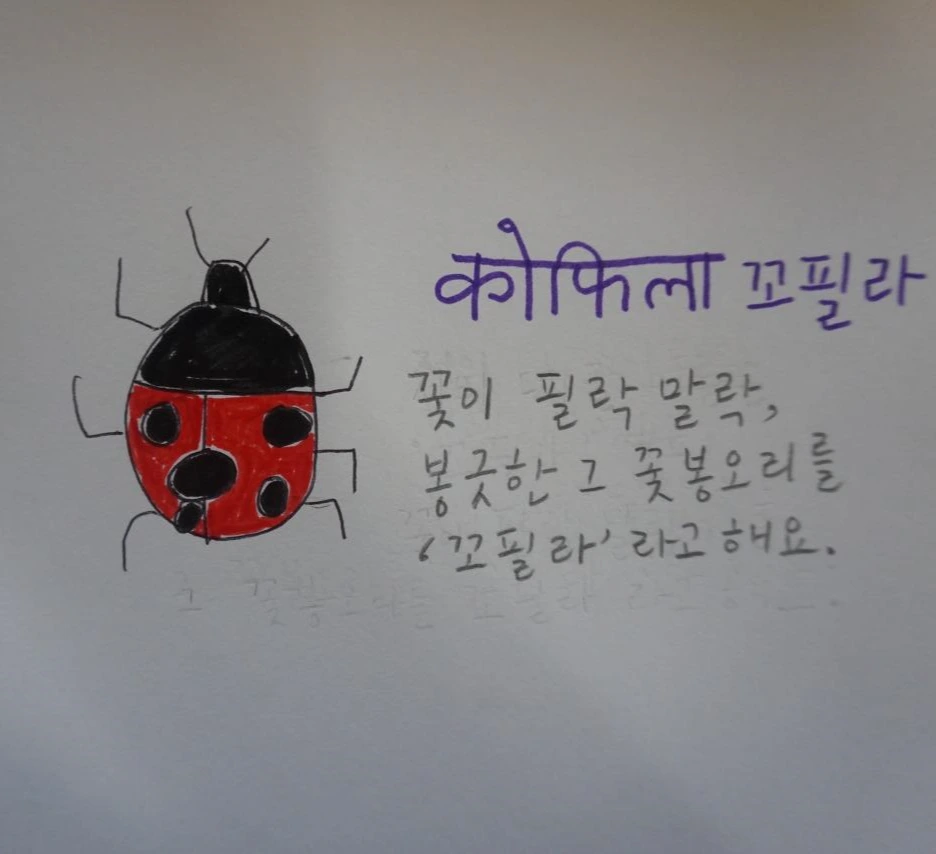 कोफिला 꼬필라
꽃이 필락 말락,
봉긋한 그 꽃봉오리를
'꼬필라' 라고 해요.